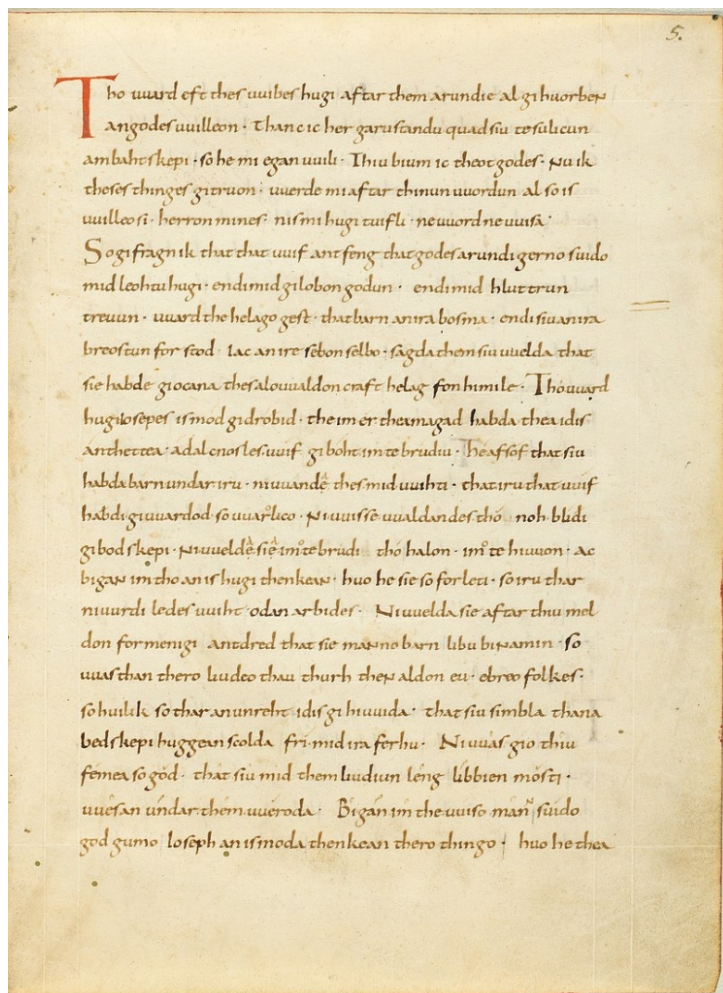 5.
Tho uuard eft thes uuibes hugi aftar them arundie al gihuorben
an godes uuilleon · Than ic her garu standu quad siu te sulicun
ambahtskepi · so he mi egan uuili · Thiu bium ic theotgodes · Nu ik
theses thinges gitruon · uuerde mi aftar thinun uuordun al so is
uuilleo si · herron mines · nis mi hugi tuifli · ne uuord ne uuisa ·
So gifragn ik that that uuif antfeng that godes arundi gerno suido
mid leohtu hugi · endi mid gilobon godun · endi mid hluttrun
treuun · uuard the helago gest · that barn an ira bosma · endi siu an ira
breostun forstod iac an ire sebon selbo · sagda them siu uuelda that
sie habde giocana thes alouualdon craft helag fon himile · Tho uuard
hugi Iosepes is mod gidrobid · the im er thea magad habda thea idis
anthettea · adalcnosles uuif giboht im te brudiu · He afsof that siu
habda barn undar iru · ni uuande thes mid uuihti · that iru that uuif
habdi giuuardod so uuarlico · Ni uuisse uualdandes tho noh blidi
gibodskepi · Ni uuelde sie imo te brudi tho halon · imo te hiuuon · ac
bigan im tho an is hugi thenkean · huo he sie so forleti · so iru thar
ni uurdi ledes uuiht odan arbides · Ni uuelda sie aftar thiu mel
don for menigi antdred that sie manno barn libu binamin · so
uuas than thero liudeo thau thurh then aldon eu · ebreo folkes ·
so huilik so thar an unreht idis gihiuuida · that siu simbla thana
bedskepi buggean scolda fri mid ira ferhu · Ni uuas gio thiu
femea so god · that siu mid them liudiun leng libbien mosti ·
uuesan undar them uueroda · Bigan im the uuiso mann suido
god gumo Ioseph an is moda thenkean thero thingo · huo he thea